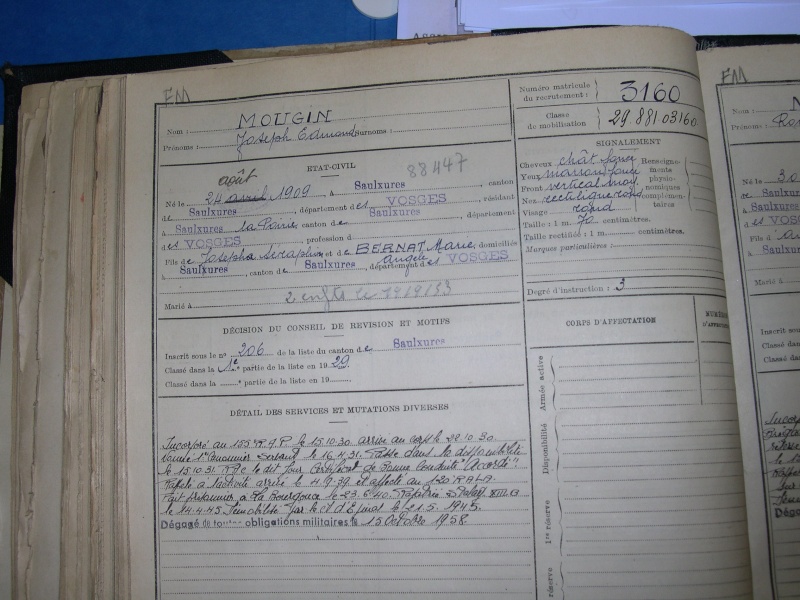 FM
Nom : MOUGIN
Prénoms : Joseph Edmond surnoms :
Numéro matricule du recrutement : 3160
Classe de mobilisation 29.881.03160
ETAT-CIVIL
88447
août
Né le 24 avril 1909, à Saulxures, canton
de Saulxures, département des VOSGES, résidant
à Saulxures canton de Saulxures, département
des VOSGES, profession d
Fils de Joseph Séraphin et de BERNAT Marie Angèle domiciliés
à Saulxures, canton de Saulxures, département des VOSGES
Marié à
2 enfts
SIGNALEMENT
Cheveux chât foncé
Yeux marron foncé
Front vertical moy
Nez rectiligne
Visage rond
Renseignements physionomiques complémentaires
Taille : 1 m. 70 centimètres.
Taille rectifiée : 1 m. centimètres.
Marques particulières :
Degré d'instruction : 3
DÉCISION DU CONSEIL DE REVISION ET MOTIFS
Inscrit sous le n° 206 de la liste du canton de Saulxures
Classé dans la 1re partie de la liste en 1929.
Classé dans la ° partie de la liste en 19
CORPS D'AFFECTATION
Armée active
Disponibilité
1re réserve
réserve
DÉTAIL DES SERVICES ET MUTATIONS DIVERSES
Incorporé au 155e R.A.P. le 15.10.30 arrivé au corps le 22.10.30
1er Canonnier Servant le 16.4.31. Passé dans la disponibilité
le 15.10.31. le dit jour Certificat de Bonne Conduite "Accordé".
Rappelé à l'activité arrivé le 4.9.39 et affecté au RALA
Fait Prisonnier à La Bourgonce le 23.6.40. Rapatrié Stalag XIII
le 24.4.45 Démobilisé par le d'Epinal le 21.5.1945.
Dégagé de toutes obligations militaires le 15 Octobre 1958
FM
Nom :
Prénoms :
Né le 30
de
à
des VOSGES
Fils d
à
Marié à
Inscrit sous
Classé dans
Classé dans
Dégagé